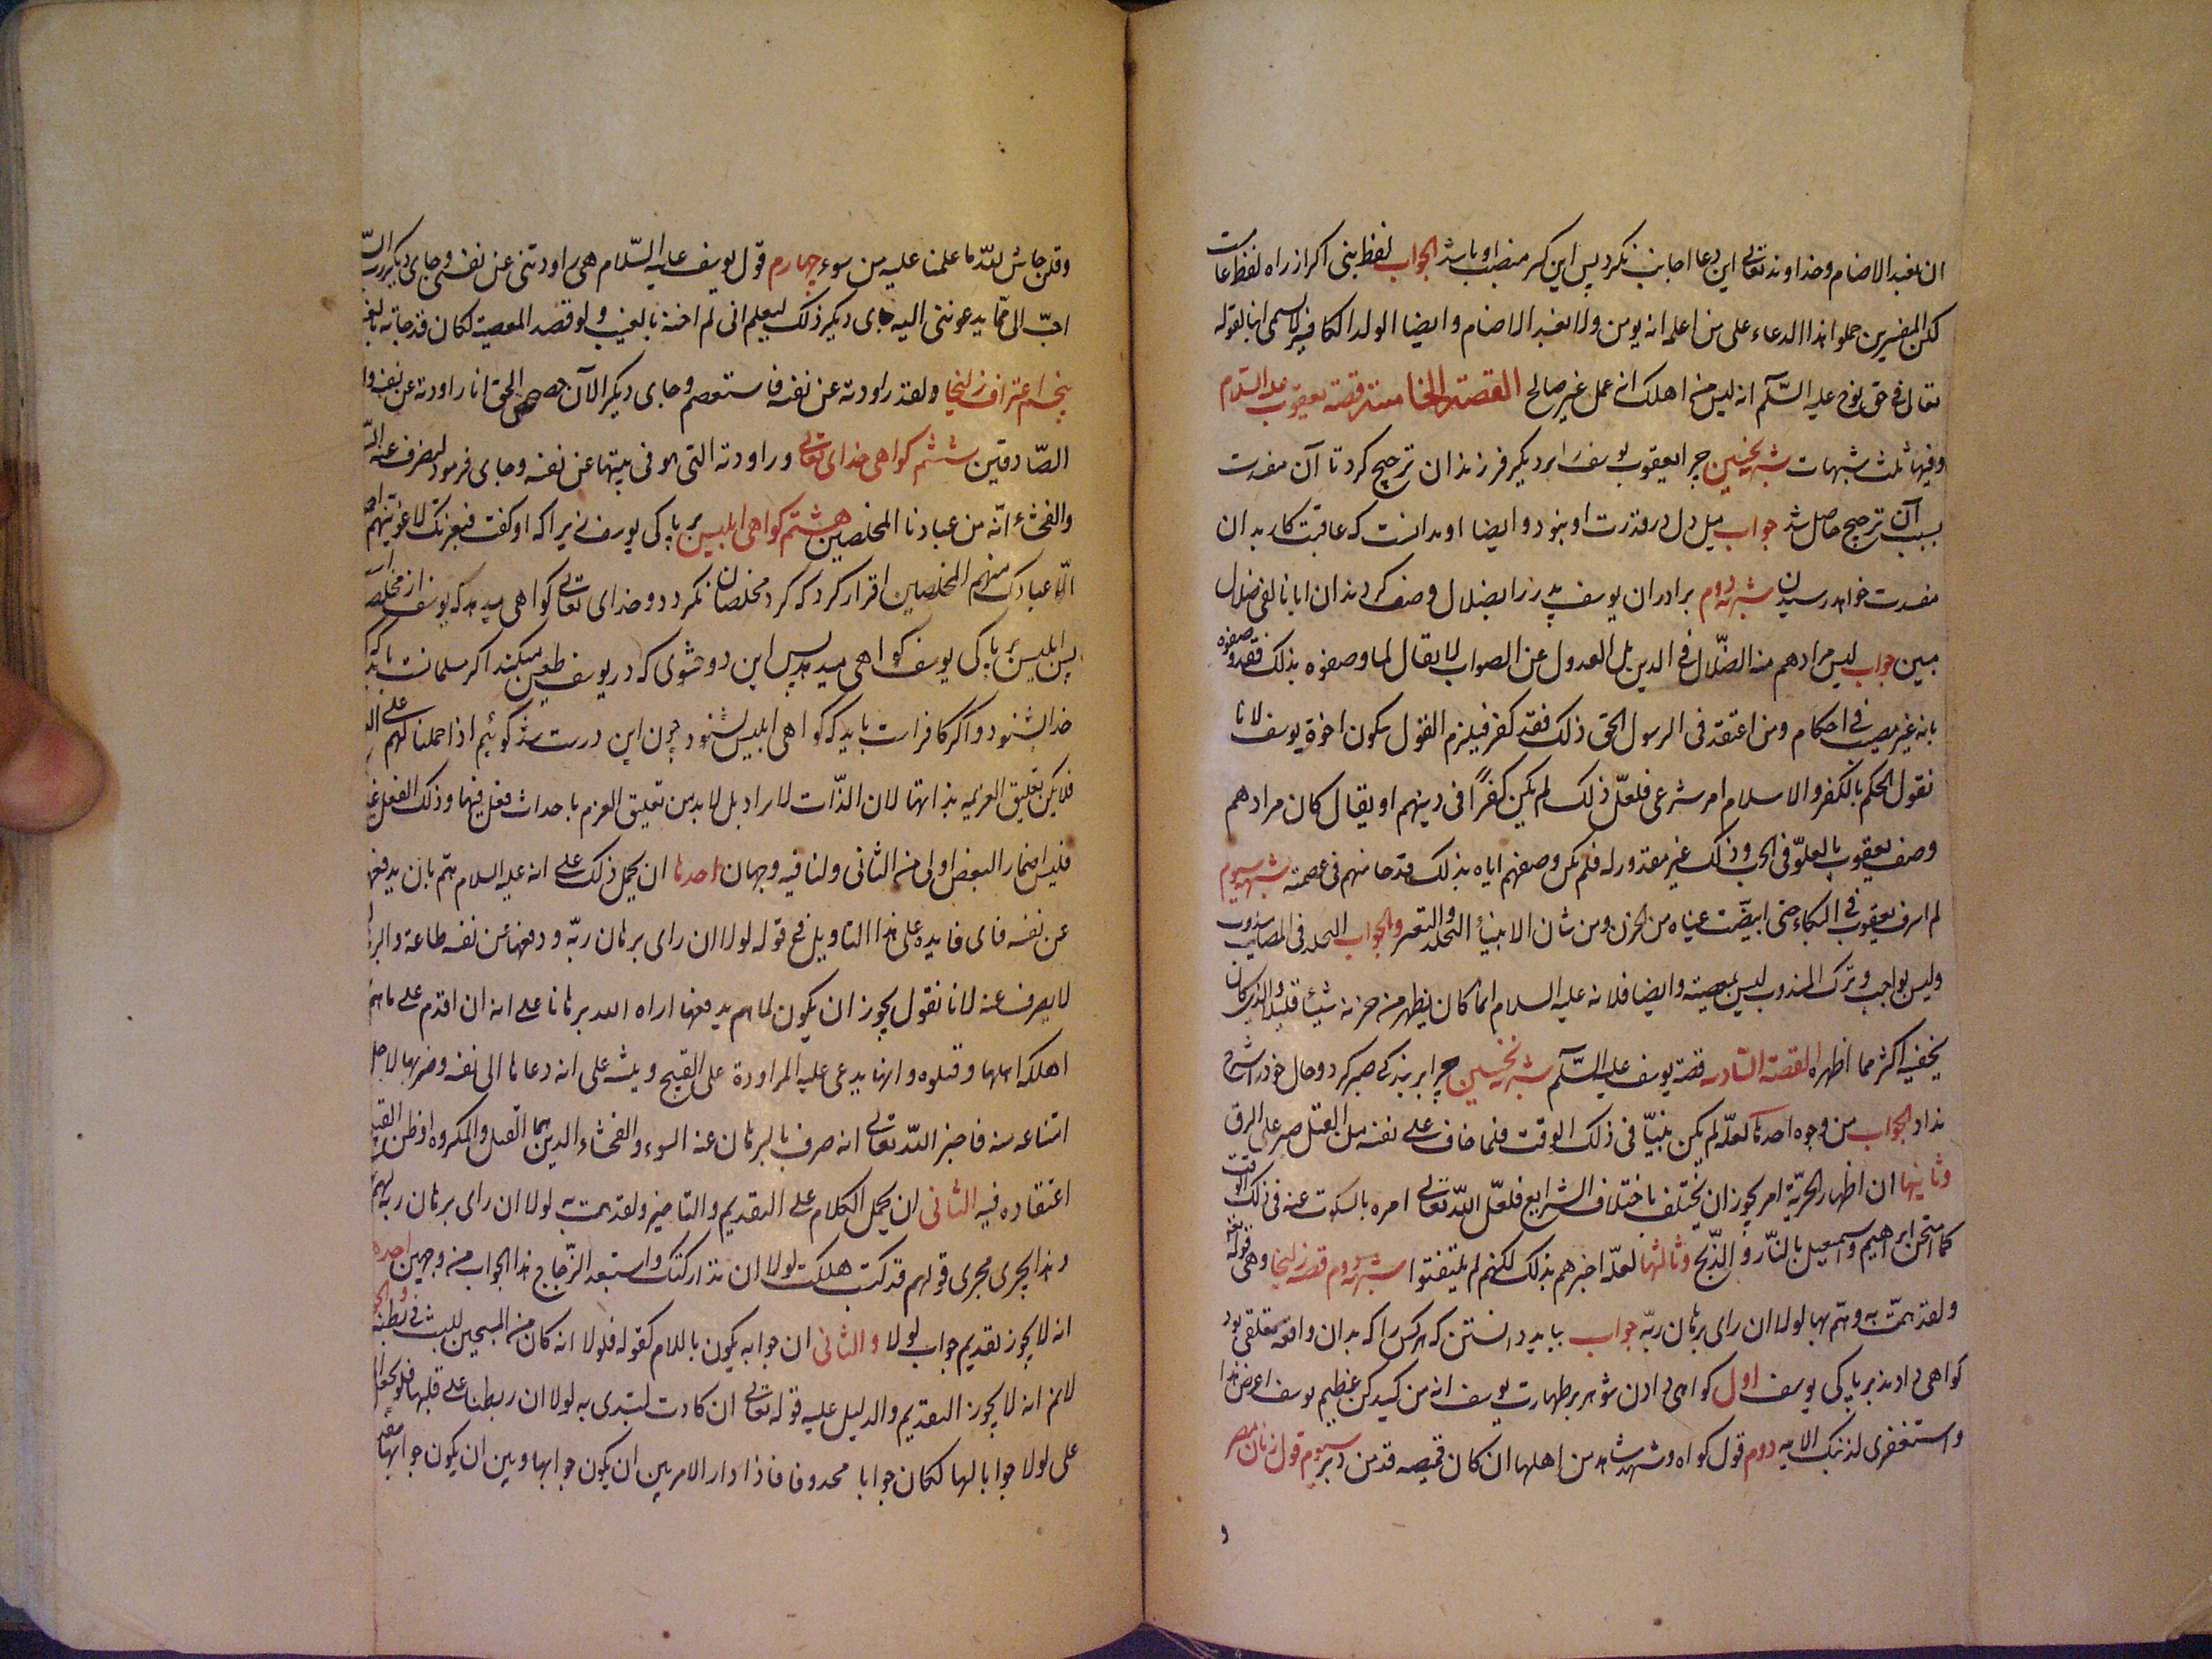 ان نعبد الاصنام وخداوند تعالی این دعا اجابت نکرد پس این کسر منصب او باشد الجواب لفظ بنی اکر از راه لفظ عامست
لکن المفسرین حملوا هذا الدعاء علی من اعلمه انه یومن ولا یعبد الاصنام وایضا الولد الکافر لا یسمی ابنا لقوله
تعالی فی حق نوح علیه السّلام انه لیس من اهلک انه عمل غیر صالح القصة الخامسة قصة یعقوب علیه السلام
وفیها ثلث شبهات شبهه نخستین چرا یعقوب یوسف را بر دیکر فرزندان ترجیح کرد تا آن مفسدت
بسبب آن ترجیح حاصل شد جواب میل دل در قدرت او نبود وایضا او ندانست که عاقبت کار بدان
مفسدت خواهد رسیدن شبهه دوم برادران یوسف پدر را بضلال وصف کردند ان ابانا لفی ضلال
مبین جواب لیس مرادهم منه الضّلال فی الدین بل العدول عن الصواب لا یقال لما وصفوه بذلک فقد وصفوه
بانه غیر مصیب فی احکام ومن اعتقد فی الرسول الحق ذلک فقد کفر فیلزم القول بکون اخوة یوسف لانا
نقول الحکم بالکفر والاسلام امر شرعی فلعلّ ذلک لم یکن کفرًا فی دینهم او یقال کان مرادهم
وصف یعقوب بالغلوّ فی الحب وذلک غیر مقدور له فلم یکن وصفهم ایاه بذلک قدحا منهم فی عصمته شبهه سیوم
لم اسرف یعقوب فی البکاء حتی ابیضّت عیناه من الحزن ومن شان الانبیأ التجلد والتصبر والجواب التجلد فی المصایب مندوب
ولیس بواجب وترک المندوب لیس بمعصیة وایضا فلانه علیه السلام انما کان یظهر من حزنه شیئا قلیلا والذی کان
یخفیه اکثر مما اظهره القصة السّادسه قصه یوسف علیه السّلام شبهه نخستین چرا بر بندکی صبر کرد وحال خود را شرح
نداد الجواب من وجوه احدها لعلّه لم یکن نبیّا فی ذلک الوقت فلما خاف علی نفسه من القتل صبر علی الرق
وثانیها ان اظهار الحریّة امر یجوز ان یختلف باختلاف الشرایع فلعلّ اللّه تعالی امره بالسکوت عنه فی ذلک الوقت
کما امتحن ابرهیم واسمعیل بالنّار والذّبح وثالثها لعلّه اخبرهم بذلک لکنهم لم یلتفتوا شبهه دوم قصه زلیخا وهی قوله تع
ولقد همّت به وهمّ بها لولا ان رای برهان ربّه جواب بباید دانستن که هر کس را که بدان واقعه تعلقی بود
کواهی دادند بر پاکی یوسف اول کواهی دادن شوهر بر طهارت یوسف انه من کیدکن عظیم یوسف اعرض عن هذا
واستغفری لذنبک الایه دوم قول کواه وشهد شاهد من اهلها ان کان قمیصه قد من دبر سیوم قول زنان مصر
و
وقلن حاش للّه ما علمنا علیه من سوء چهارم قول یوسف علیه السّلام هی راودتنی عن نفسی وجای دیکر رب السّ
احبّ الیّ ممّا یدعوننی الیه جای دیکر ذلک لیعلم انی لم اخنه بالغیب ولو قصد المعصیة لکان قد خانه بالغ
پنجم اعتراف زلیخا ولقد راودته عن نفسه فاستعصم وجای دیکر الآن حصحص الحق انا راودته عن نفسه وا
الصّادقین ششم کواهی خدای تعالی وراودته التی هو فی بیتها عن نفسه وجای فرمود لنصرف عنه السّ
والفحشأ انّه من عبادنا المخلصین هشتم کواهی ابلیس بر پاکی یوسف زیرا که او کفت فبعزتک لاغوینهم اج
الّا عبادک منهم المخلصین اقرار کرد که کرد مخلصان نکردد وخدای تعالی کواهی میدهد که یوسف از مخلصا
پس ابلیس بر پاکی یوسف کواهی میدهد پس این دو حشوی که در یوسف طعن میکنند اکر مسلمانست باید که
خدا بشنود واکر کافرست باید که کواهی ابلیس بشنود چون این درست شد کوئیم اذا حملنا لهم علی ال
فلا یمکن تعلیق العزیمه بذاتها لان الذّات لا یراد بل لا بد من تعلیق العزم باحداث فعل فیها وذلک الفعل غی
فلیس اضمار البعض اولی من الثانی ولنا فیه وجهان احدها ان یحمل ذلک علی انه علیه السلام همّ بان یدفعها
عن نفسه فای فایده علی هذا التاویل فی قوله لولا ان رای برهان ربّه ودفعها عن نفسه طاعة والبره
لا یصرف عنه لانا نقول یجوز ان یکون لما هم بدفعها اراه الله برهانا علی انه ان اقدم علی ما هم
اهلکه اهلها وقتلوه وانها یدعی علیه المراودة علی القبیح ویشهد علی انه دعاها الی نفسه وضربها لاجل
امتناعها منه فاخبر اللّه تعالی انه صرف بالبرهان عنه السوء والفحشاء الذین هما القتل والمکروه او ظن القبی
اعتقاده فیه الثانی ان یحمل الکلام علی التقدیم والتاخیر ولقد همت به لولا ان رای برهان ربه لهم
وهذا یجری مجری قولهم قد کنت هلکت لولا ان تدارکتک واستبعد الزّجاج هذا الجواب من وجهین احده
انه لا یجوز تقدیم جواب لولا والثانی ان جوابه یکون باللام کقوله فلولا انه کان من المسبحین للبث فی بطنه والجو
لانم انه لا یجوز التقدیم والدلیل علیه قوله تعالی ان کادت لتبدی به لولا ان ربطنا علی قلبها فلو لم یجعل
علی لولا جوابا لها لکان جوابا محذوفا فاذا دار الامر بین ان یکون جوابها وبین ان یکون جوابها مقد